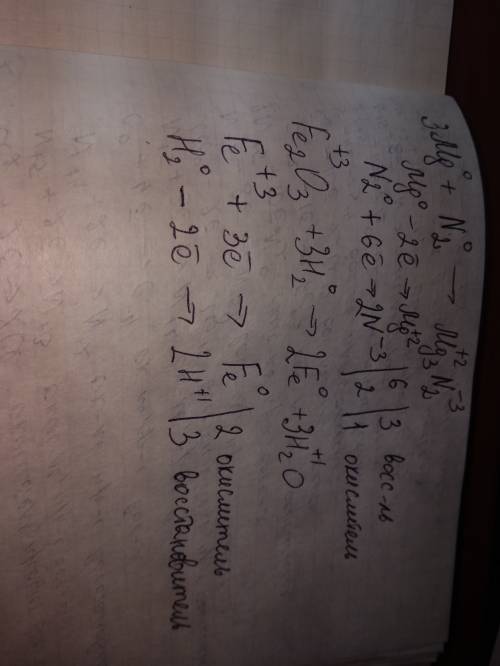 3Mg⁰ + N₂⁰ → Mg₃⁺²N₂⁻³
Mg⁰ - 2ē → Mg⁺² | 6 | 3 восс-ль
N₂⁰ + 6ē → 2N⁻³ | 2 | 1 окислитель
Fe₂⁺³O₃ + 3H₂⁰ → 2Fe⁰ + 3H₂⁺¹O
Fe⁺³ + 3ē → Fe⁰ | 2 окислитель
H₂⁰ - 2ē → 2H⁺¹ | 3 восстановитель